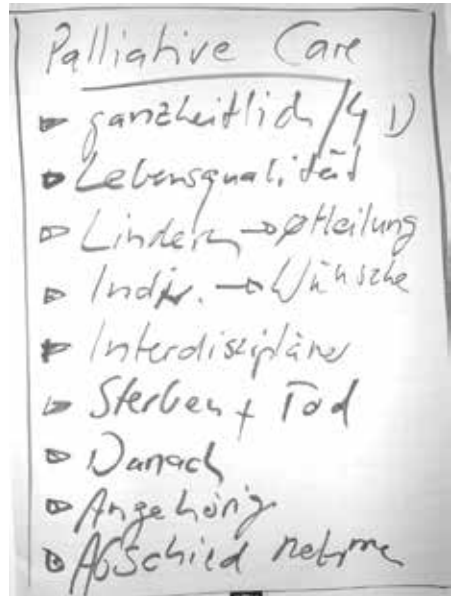 Palliative Care
ganzheitlich / 4 D
Lebensqualität
Lindern → ø Heilung
Indiv. → Wünsche
Interdisziplinär
Sterben + Tod
Danach
Angehörig
Abschied nehmen